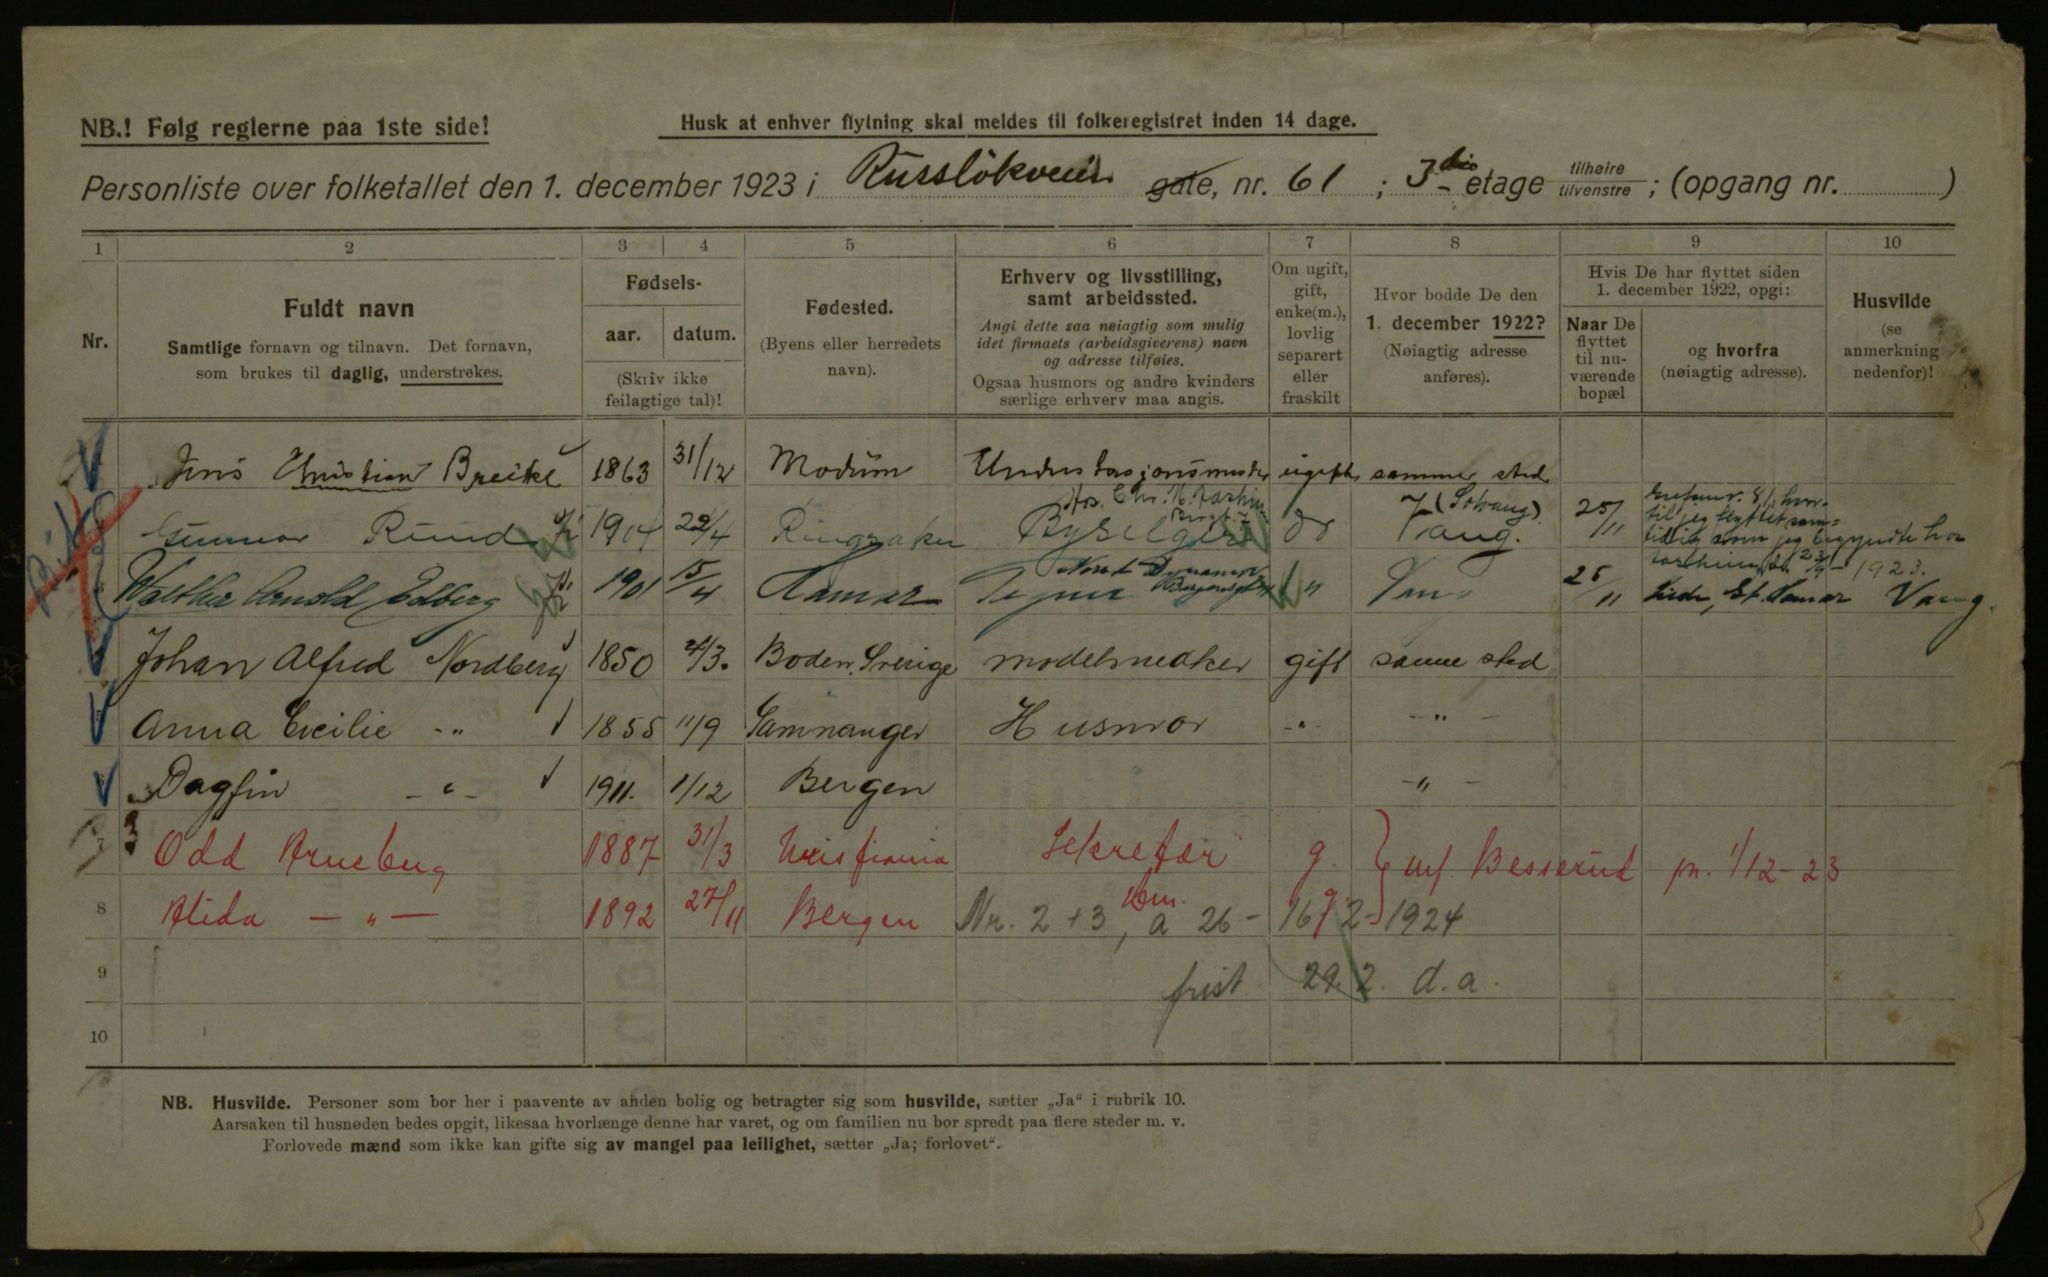 NB.! Følg reglerne paa 1ste side!
Husk at enhver flytning skal meldes til folkeregistret inden 14 dage.
Personliste over folketallet den 1. december 1923 i Russlökveien gate, nr. 61 ; 3die etage tilhøire tilvenstre ; (opgang nr. )
1 2 3 4 5 6 7 8 9 10
Nr.
Fuldt navn
Samtlige fornavn og tilnavn. Det fornavn,
som brukes til daglig, understrekes.
Fødsels-
aar. datum.
(Skriv ikke
feilagtige tal)!
Fødested.
(Byens eller herredets
navn).
Erhverv og livsstilling,
samt arbeidssted.
Angi dette saa nøiagtig som mulig
idet firmaets (arbeidsgiverens) navn
og adresse tilføies.
Ogsaa husmors og andre kvinders
særlige erhverv maa angis.
Om ugift,
gift,
enke(m.),
lovlig
separert
eller
fraskilt
Hvor bodde De den
1. december 1922?
(Nøiagtig adresse
anføres).
Hvis De har flyttet siden
1. december 1922, opgi:
Naar De
flyttet
til nu-
værende
bopæl
og hvorfra
(nøiagtig adresse).
Husvilde
(se
anmerkning
nedenfor)!
Christian Breike 1863 31/12 Modum ugift samme sted
Gunnar Ruud 1904 22/4 Ringsaker do Vang. 25/11
Walther Arnold Edberg 1901 15/4 Hamar Tegner " Vang 25/11 Vang.
Johan Alfred Nordberg 1850 4/3. Boden. Sverige modelsnedker gift samme sted
Anna Cecilie -"- 1855 11/9 Samnanger Husmor -"- -"-
Dagfin -"- 1911. 1/12 Bergen -"-
7 Odd Arneberg 1887 31/3 Kristiania Sekretær g. Besserud pr. 1/12-23
8 Alida -"- 1892 27/11 Bergen Hm. g.
Nr. 2 + 3, a 26- 16/2-1924
9 frist 29/2. d.a.
10
NB. Husvilde. Personer som bor her i paavente av anden bolig og betragter sig som husvilde, sætter „Ja“ i rubrik 10.
Aarsaken til husnøden bedes opgit, likesaa hvorlænge denne har varet, og om familien nu bor spredt paa flere steder m. v.
Forlovede mænd som ikke kan gifte sig av mangel paa leilighet, sætter „Ja; forlovet“.